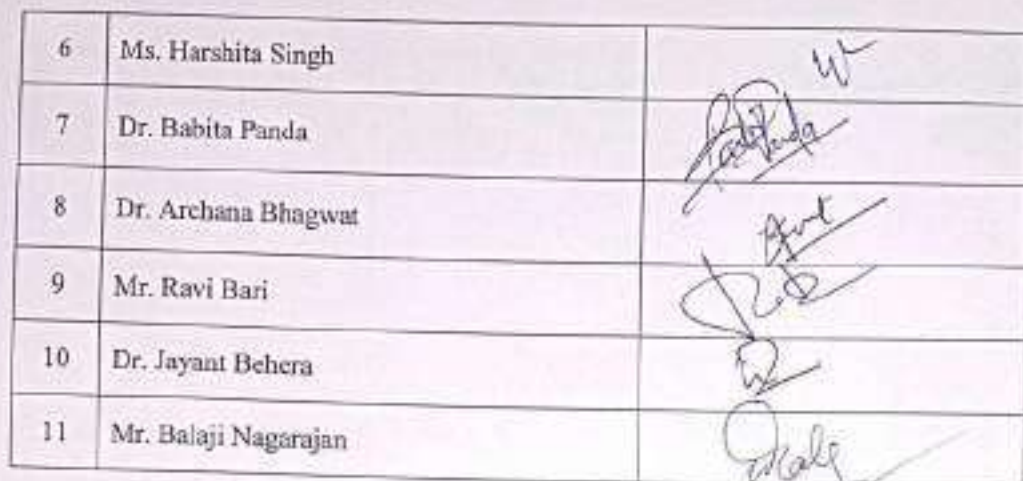 6 Ms. Harshita Singh
7 Dr. Babita Panda
8 Dr. Archana Bhagwat
9 Mr. Ravi Bari
10 Dr. Jayant Behera
11 Mr. Balaji Nagarajan